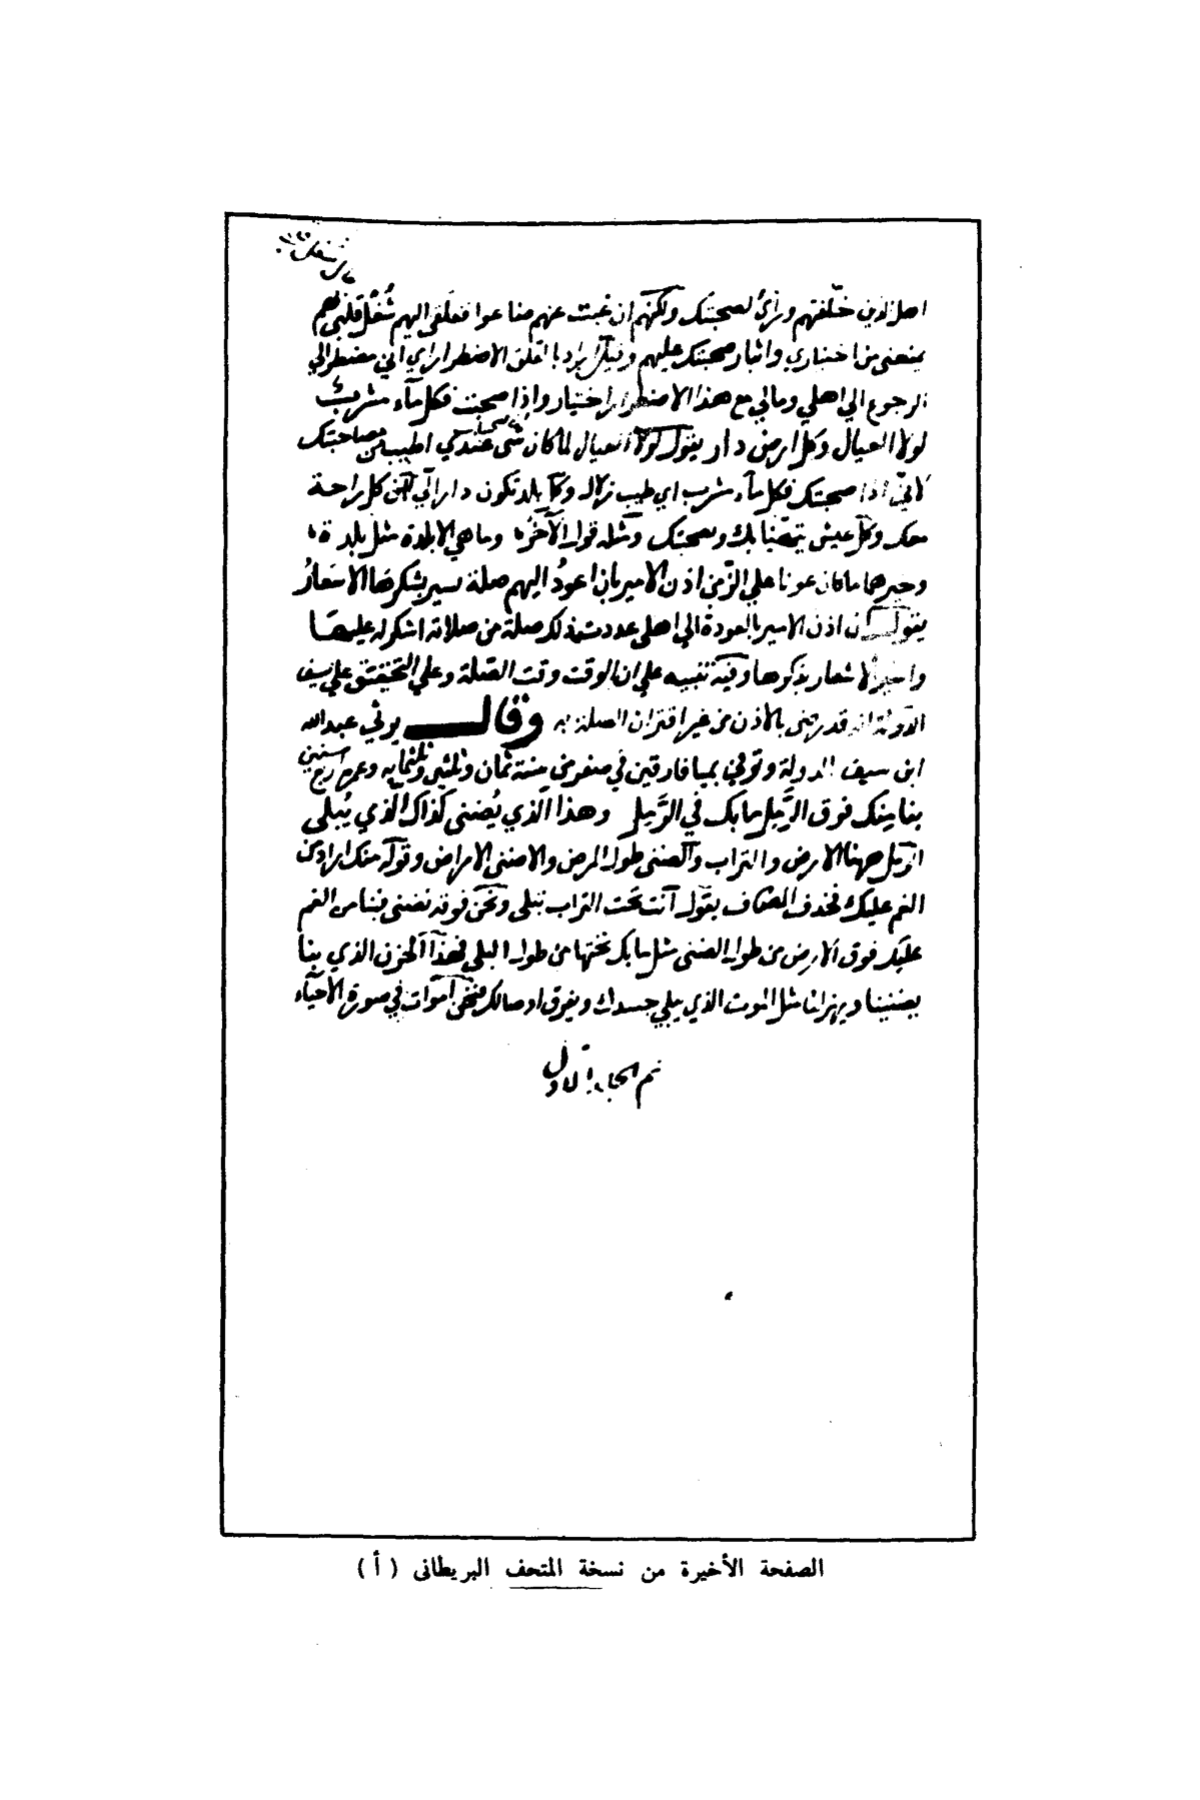 اهل الذين خلّفتهم وراي لصحبتك ولكنهم ان غبت عنهم ضاعوا فتعلقى اليهم شُغل قلبى بهم
يمنعنى من اختياري وايثار صحبتك عليهم وقيل اراد با القلق الاضطرار اي اني مضطر الي
الرجوع الي اهلي ومالي مع هذا الاضطرار اختيار واذا صحبت فكل مآء مشربٌ
لولا العيال وكل ارض دار يقول لولا العيال لما كان شى عندي اطيب من مصاحبتك
لانّي اذا صحبتك فكل مآء مشرب اي طيب زلال وكل بلد تكون داراً لي لان كل راحة
معك وكل عيش بك وبصحبتك ومثله قول الآخر وما هي الا بلدة مثل بلدة
وخيرهما ما كان عونا علي الزّمن اذن الامير بان اعودُ اليهم صلة تسير بشكرها الاشعارُ
يقول ان اذن الامير بالعودة الي اهلى عددت ذلك صلة من صلاته اشكره عليها
الاشعار بذكرها وفيه تنبيه علي ان الوقت وقت الصّلة وعلي التحقيق على سيف
الدّولة انه قد رضى بالاذن من غير اقتران الصلة به وقالـــــ يرثي عبدالله
ابن سيف الدولة وتوفي بميافارقين في صفر من سنة ثمان وثلثين وثلثمايه وعمره اربع سنين
بنا منك فوق الرَّمل ما بك في الرَّمل وهذا الّذي يُضنى كذاك الذي يُبلى
الرّمل ههنا الارض والتراب والضنى طول المرض والاضنى الامراض وقوله منك اراد من
الغم عليك فحذف المضاف يقول انت تحت التراب تبلى ونحن فوقه نضنى فبنا من الغم
عليك فوق الارض من طول الضنى مثل ما بك تحتها من طول البلى فهذا الحزن الذي بنا
يضنينا ويهزلنا مثل الموت الذي يبلي جسدك ويفرق اوصالك فنحن اموات في صورة الاحيآء
تم الاول
الصفحة الأخيرة من نسخة المتحف البريطانى ( أ )